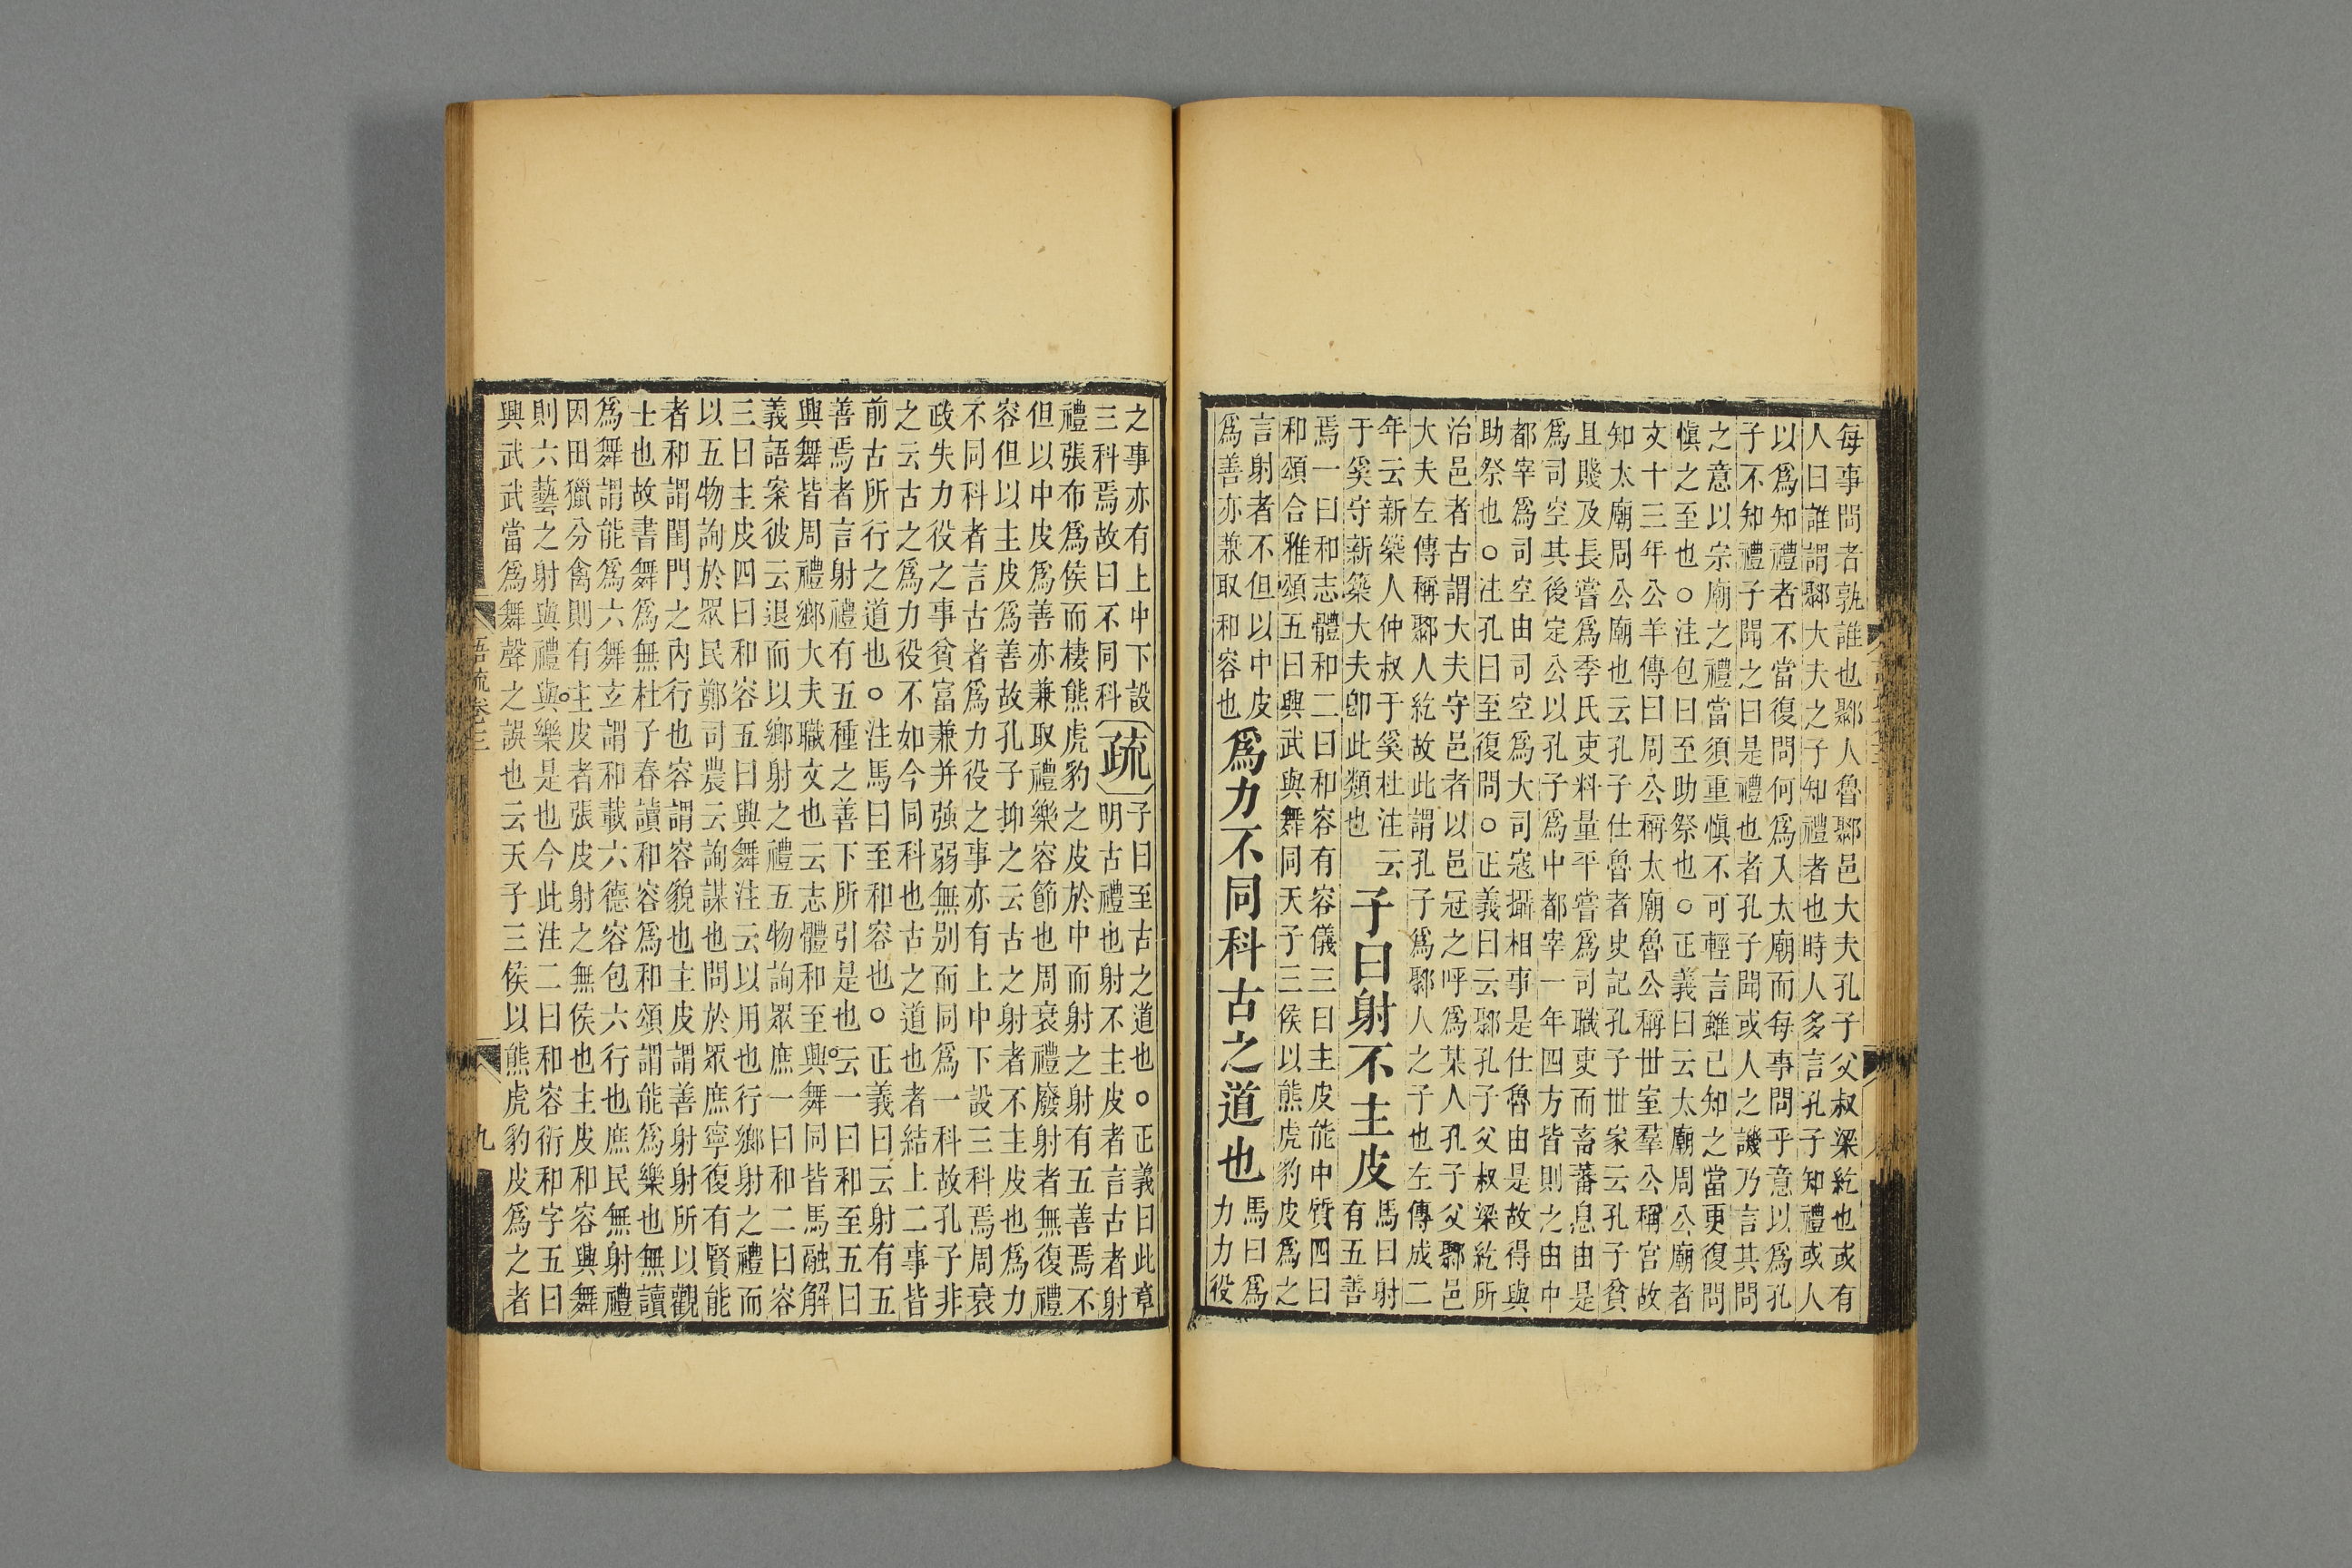 每事問者孰誰也鄹人魯鄹邑大夫孔子父叔梁紇也或有
人曰誰謂鄹大夫之子知禮者也時人多言孔子知禮或人
以爲知禮者不當復問何爲入太廟而每事問乎意以爲孔
子不知禮子聞之曰是禮也者孔子聞或人之譏乃言其問
之意以宗廟之禮當須重慎不可輕言雖已知之當更復問
慎之至也○注包曰至助祭也○正義曰云太廟周公廟者
文十三年公羊傳曰周公稱太廟魯公稱世室羣公稱宮故
知太廟周公廟也云孔子仕魯者史記孔子世家云孔子貧
且賤及長嘗爲季氏吏料量平嘗爲司職吏而畜蕃息由是
爲司空其後定公以孔子爲中都宰一年四方皆則之由中
都宰爲司空由司空爲大司寇攝相事是仕魯由是故得與
助祭也○注孔曰至復問○正義曰云鄹孔子父叔梁紇所
治邑者古謂大夫守邑者以邑冠之呼爲某人孔子父鄹邑
大夫左傳稱鄹人紇故此謂孔子爲鄹人之子也左傳成二
年云新築人仲叔于奚杜注云
于奚守新築大夫卽此類也
子曰射不主皮
馬曰射
有五善
焉一曰和志體和二曰和容有容儀三曰主皮能中質四曰
和頌合雅頌五曰興武與舞同天子三侯以熊虎豹皮爲之
言射者不但以中皮
爲善亦兼取和容也
爲力不同科古之道也
馬曰爲
力力役
之事亦有上中下設
三科焉故曰不同科
疏
子曰至古之道也○正義曰此章
明古禮也射不主皮者言古者射
禮張布爲侯而棲熊虎豹之皮於中而射之射有五善焉不
但以中皮爲善亦兼取禮樂容節也周衰禮廢射者無復禮
容但以主皮爲善故孔子抑之云古之射者不主皮也爲力
不同科者言古者爲力役之事亦有上中下設三科焉周衰
政失力役之事貧富兼并強弱無別而同爲一科故孔子非
之云古之爲力役不如今同科也古之道也者結上二事皆
前古所行之道也○注馬曰至和容也○正義曰云射有五
善焉者言射禮有五種之善下所引是也○云一曰和至五曰
興舞皆周禮鄉大夫職文也云志體和至興舞同皆馬融解
義語案彼云退而以鄉射之禮五物詢眾庶一曰和二曰容
三曰主皮四曰和容五曰興舞注云以用也行鄉射之禮而
以五物詢於眾民鄭司農云詢謀也問於眾庶寧復有賢能
者和謂閨門之內行也容謂容貌也主皮謂善射射所以觀
士也故書舞爲無杜子春讀和容爲和頌謂能爲樂也無讀
爲舞謂能爲六舞玄謂和載六德容包六行也庶民無射禮
因田獵分禽則有主皮○者張皮射之無侯也主皮和容興舞
則六藝之射與禮與樂是也今此注二曰和容衍和字五曰
興武武當爲舞聲之誤也云天子三侯以熊虎豹皮爲之者
語疏卷三
九